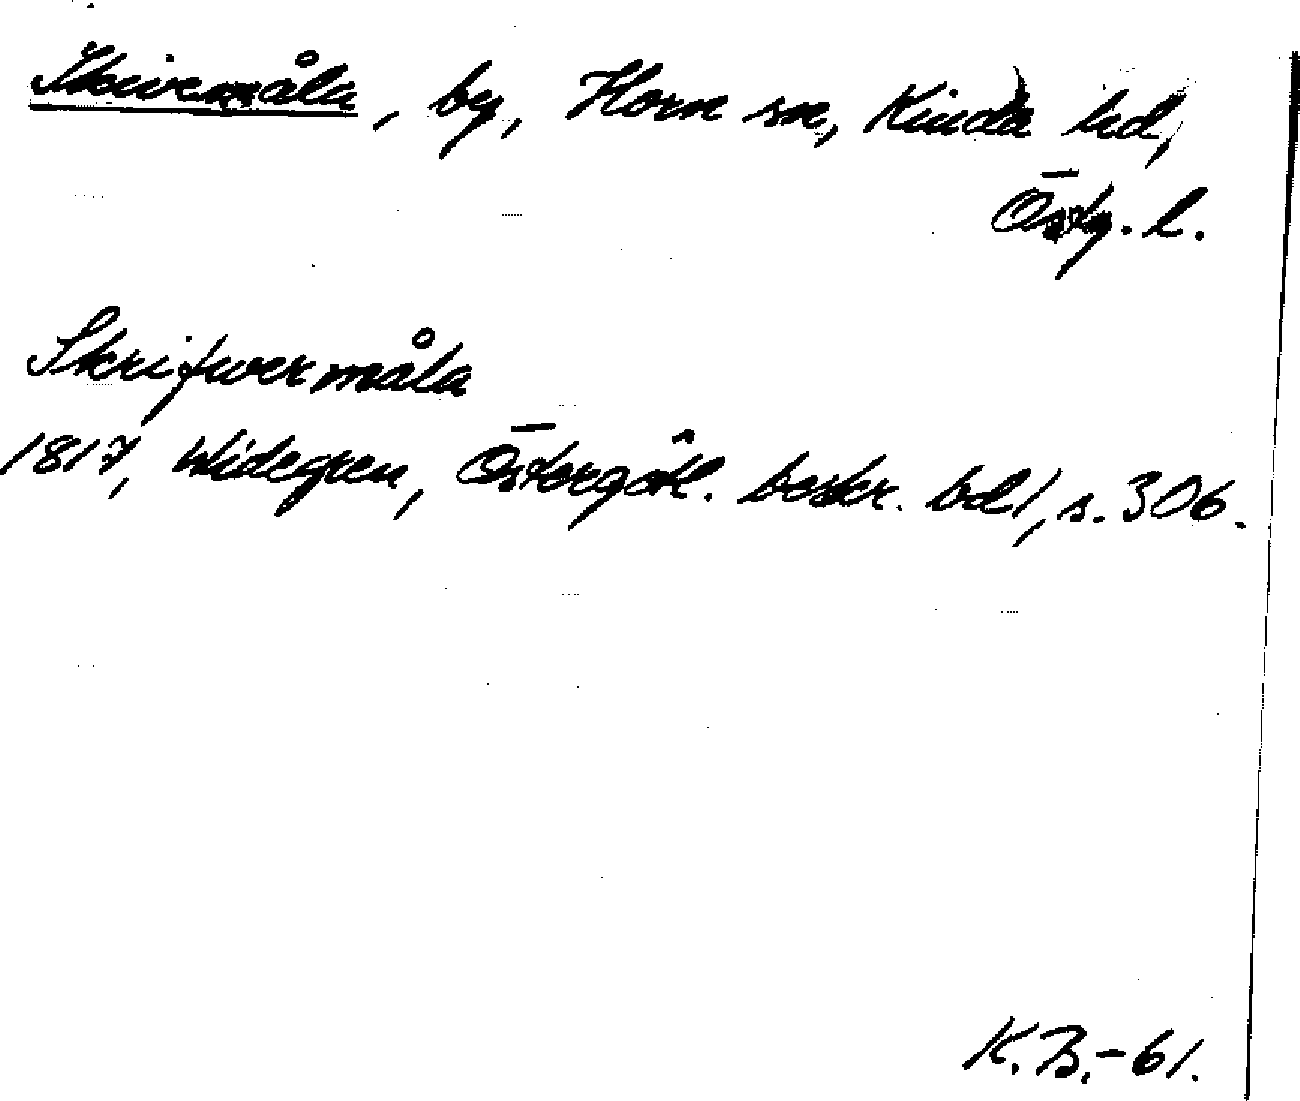 Skivemåla, by, Horn sn, Kinda hd,
Östg. l.
Skrifwermåla
1817, Widegren, Östergötl. beskr. bd 1, s. 306.
K.B.-61.